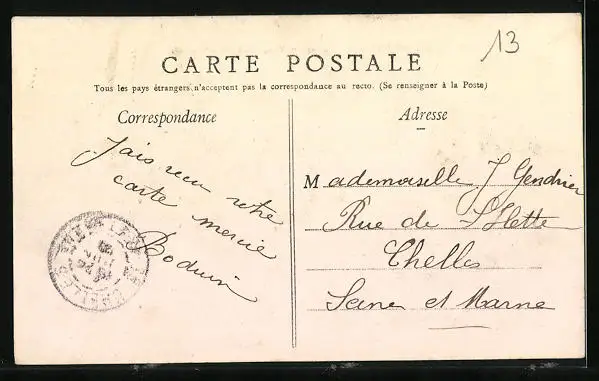 13
CARTE POSTALE
Tous les pays étrangers n'acceptent pas la correspondance au recto. (Se renseigner à la Poste)
Correspondance
Jais recu votre
carte mercie
Boduin
Adresse
Mademoiselle J Gendrier
Rue de
Chelles
Seine et Marne
CHELLES